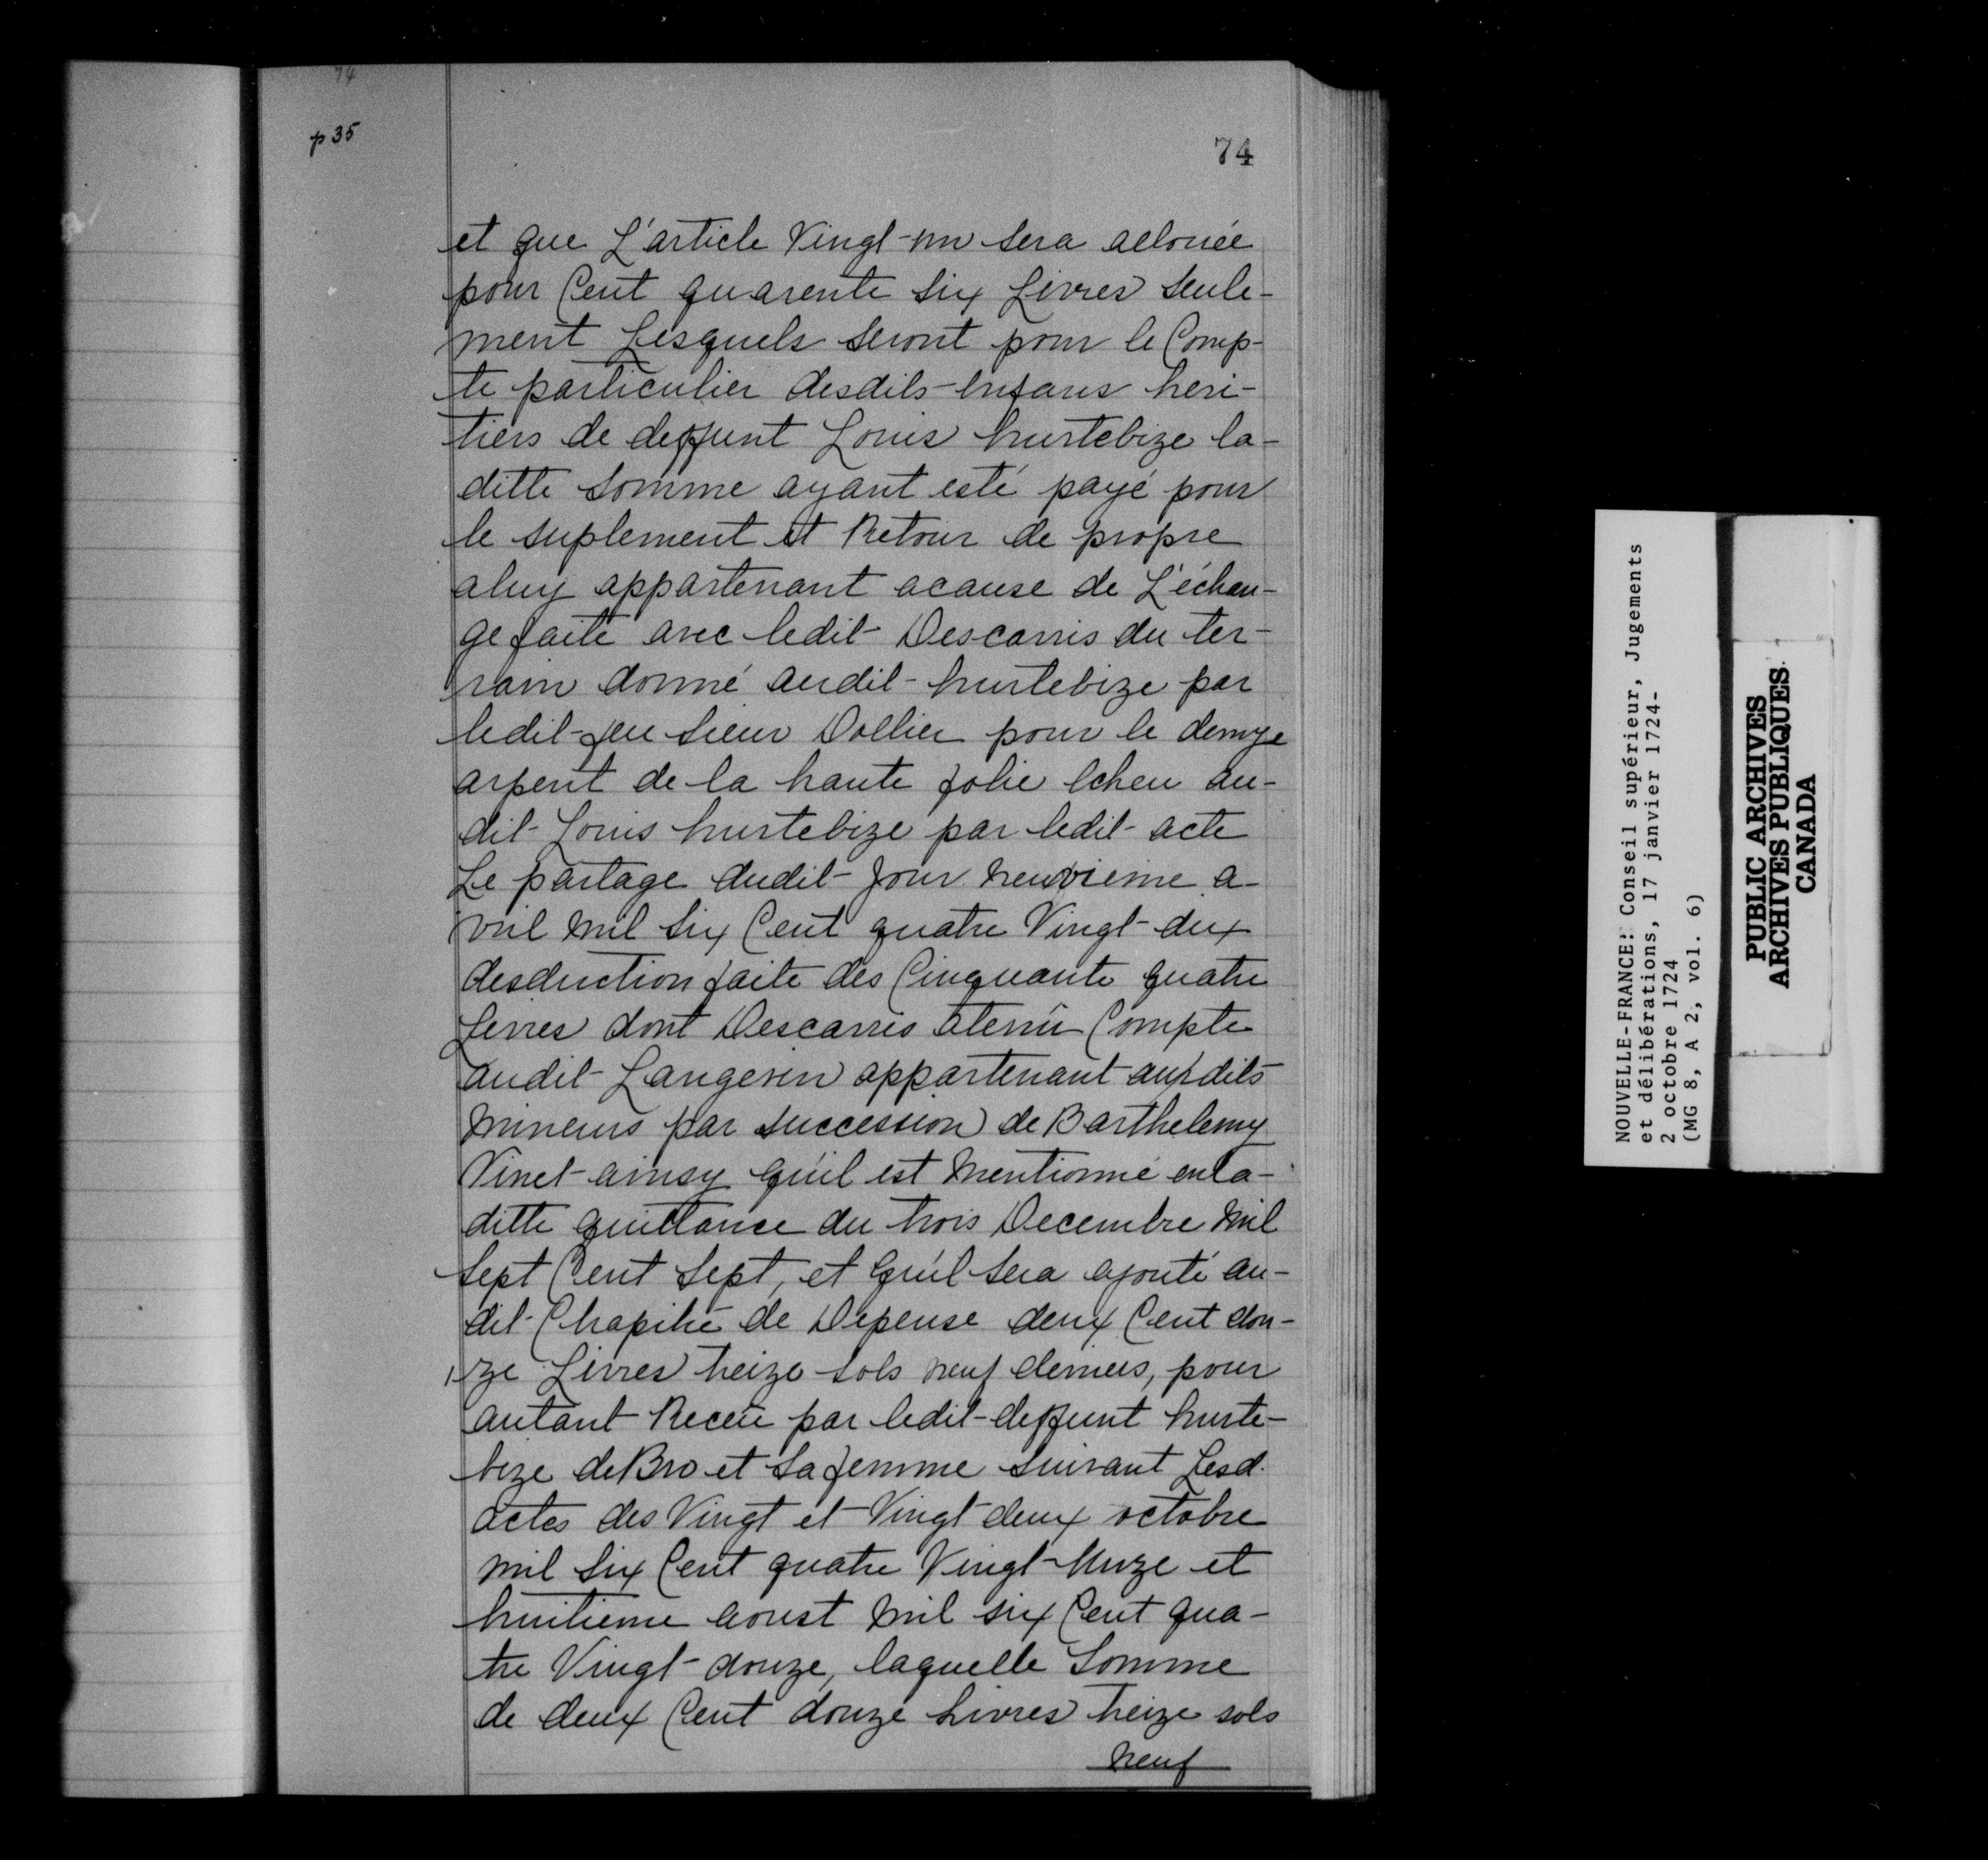 74
p 35
74
et que L'article Vingt-un sera alouée
pour Cent quarente six Livres seule-
ment Lesquels seront pour le Comp-
te particulier desdits-Enfans heri-
tiers de deffunt Louis hurtebize la-
ditte somme ayant esté payé pour
le suplement et Retour de propre
aluy appartenant acause de L'échan-
ge faite avec ledit Descarris du ter-
rain donné audit-hurtebize par
ledit-feu sieur Dollier pour le demye
arpent de la haute folie Echeu au-
dit-Louis hurtebize par ledit-acte
Le partage dudit-Jour neuvieme a-
vril mil six Cent quatre Vingt-dix
desduction faite des Cinquante quatre
Livres dont Descarris atenü Compte
audit-Langevin appartenant auxdits
mineurs par succession de Barthelemy
Vinet-ainsy qu'il est mentionné enla-
ditte quittance du trois Decembre mil
sept Cent sept, et qu'il sera ajouté au-
dit-Chapitre de Depense deux Cent dou-
ze Livres treize sols neuf deniers, pour
autant Receu par ledit-deffunt hurte-
bize de Bro et sa femme suivant Lesd.
actes des Vingt et Vingt deux octobre
mil six Cent quatre Vingt-Unze et
huitieme aoust mil six Cent qua-
tre Vingt-douze, laquelle Somme
de deux Cent douze Livres treize sols
neuf
NOUVELLE-FRANCE: Conseil supérieur, Jugements
et délibérations, 17 janvier 1724-
2 octobre 1724
(MG 8, A 2, vol. 6)
PUBLIC ARCHIVES
ARCHIVES PUBLIQUES
CANADA